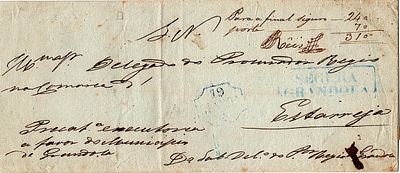 S. N.
Para a final seguro 240
porte 70
310
Réis
Delegado do Procurador Regio
na Comarca d'
19
SEGURA
GRANDOLA
Estarreja
Precat.ª executoria
a favor do Municipio
de Grandola
Do Sub Del.º do